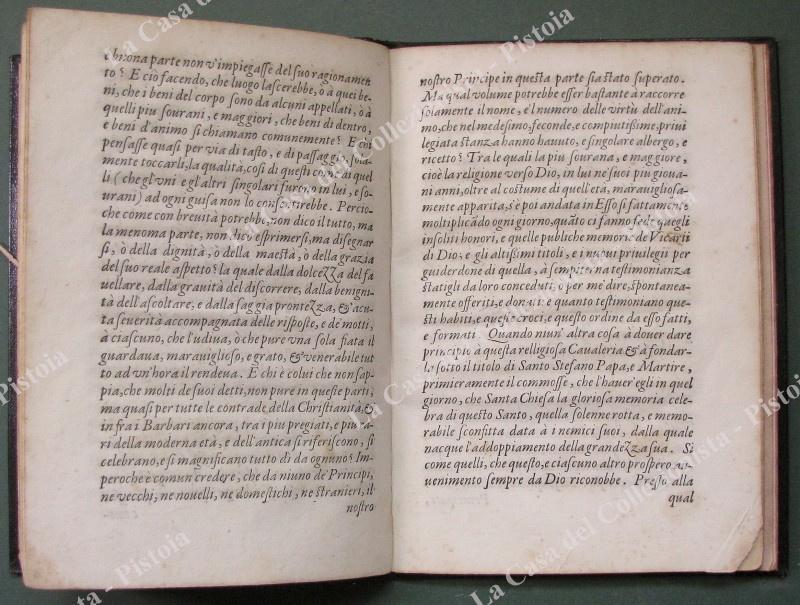 buona parte non v'impiegasse del suo ragionamen
to? E ciò facendo, che luogo lascerebbe, o a quei be
ni, che i beni del corpo sono da alcuni appellati, ò à
quelli piu sourani, e maggiori, che beni di dentro,
e beni d'animo si chiamano comunemente? E chi
pensasse quasi per via di tasto, e di passaggio sola-
mente toccarli, la qualità, così di questi come di quel
li (che gl'vni e gl'altri singolari furono in lui, e so-
urani) ad ogni guisa non lo consentirebbe. Percio-
che come con breuità potrebbe, non dico il tutto, ma
la menoma parte, non dico esprimersi, ma disegnar
si, ò della dignità, ò della maestà, ò della grazia
del suo reale aspetto? la quale dalla dolcezza del fa
uellare, dalla grauità del discorrere, dalla benignità
dell'ascoltare, e dalla saggia prontezza, & acu-
ta seuerità accompagnata delle risposte, e de motti,
à ciascuno, che l'udiua, ò che pure vna sola fiata il
guardaua, marauiglioso, e grato, & venerabile tut
to ad vn'hora il rendeua. E chi è colui che non sap-
pia, che molti de suoi detti, non pure in queste parti,
ma quasi per tutte le contrade della Christianità, &
in fra i Barbari ancora, tra i piu pregiati, e piu ra-
ri della moderna età, e dell'antica si riferiscono, si
celebrano, e si magnificano tutto dì da ognuno? Im-
peroche è comun credere, che da niuno de Principi,
ne vecchi, ne nouelli, ne domestichi, ne stranieri, il
nostro
nostro Principe in questa parte sia stato superato.
Ma qual volume potrebbe esser bastante à raccorre
solamente il nome, e'l numero delle virtù dell'ani-
mo, che nel medesimo, feconde, e compiutissime, priui
legiata stanza hanno hauuto, e singolare albergo, e
ricetto? Tra le quali la piu sourana, e maggiore,
cioè la religione verso Dio, in lui ne suoi piu gioua-
ni anni, oltre al costume di quell'età, marauigliosa-
mente apparita, s'è poi andata in Esso sì fattamente
multiplicãdo ogni giorno, quãto ci fanno fede quegli
insoliti honori, e quelle publiche memorie de Vicarii
di Dio; e gli altissimi titoli, e i nuoui priuilegii per
guiderdone di quella, à sempiterna testimonianza
statigli da loro conceduti, o per me' dire, spontanea-
mente offeriti, e donati: e quanto testimoniano que-
sti habiti, e queste croci, e questo ordine da esso fatti,
e formati. Quando niun' altra cosa à douer dare
principio à questa relligiosa Caualeria & à fondar-
la sotto il titolo di Santo Stefano Papa, e Martire,
primieramente il commosse, che l'hauer egli in quel
giorno, che Santa Chiesa la gloriosa memoria cele-
bra di questo Santo, quella solenne rotta, e memo-
rabile sconfitta data à i nemici suoi, dalla quale
nacque l'addoppiamento della grandezza sua. Si
come quelli, che questo, e ciascuno altro prospero au-
uenimento sempre da Dio riconobbe. Presso alla
qual
La Casa del Collezionista - Pistoia